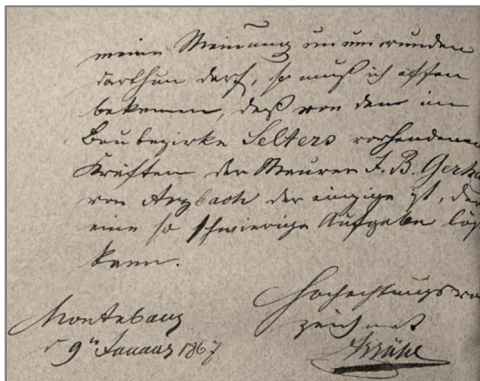 meine Meinung unumwunden
darthun darf, so muß ich offen
bekennen, daß von den im
Baubezirke Selters vorhandenen
Kräften der Maurer J. B. Gerha
von Arzbach der einzige ist, der
eine so schwierige Aufgabe lös
kann.
Hochachtungsvo
zeichnet
Montabaur
d 9n Januar 1867